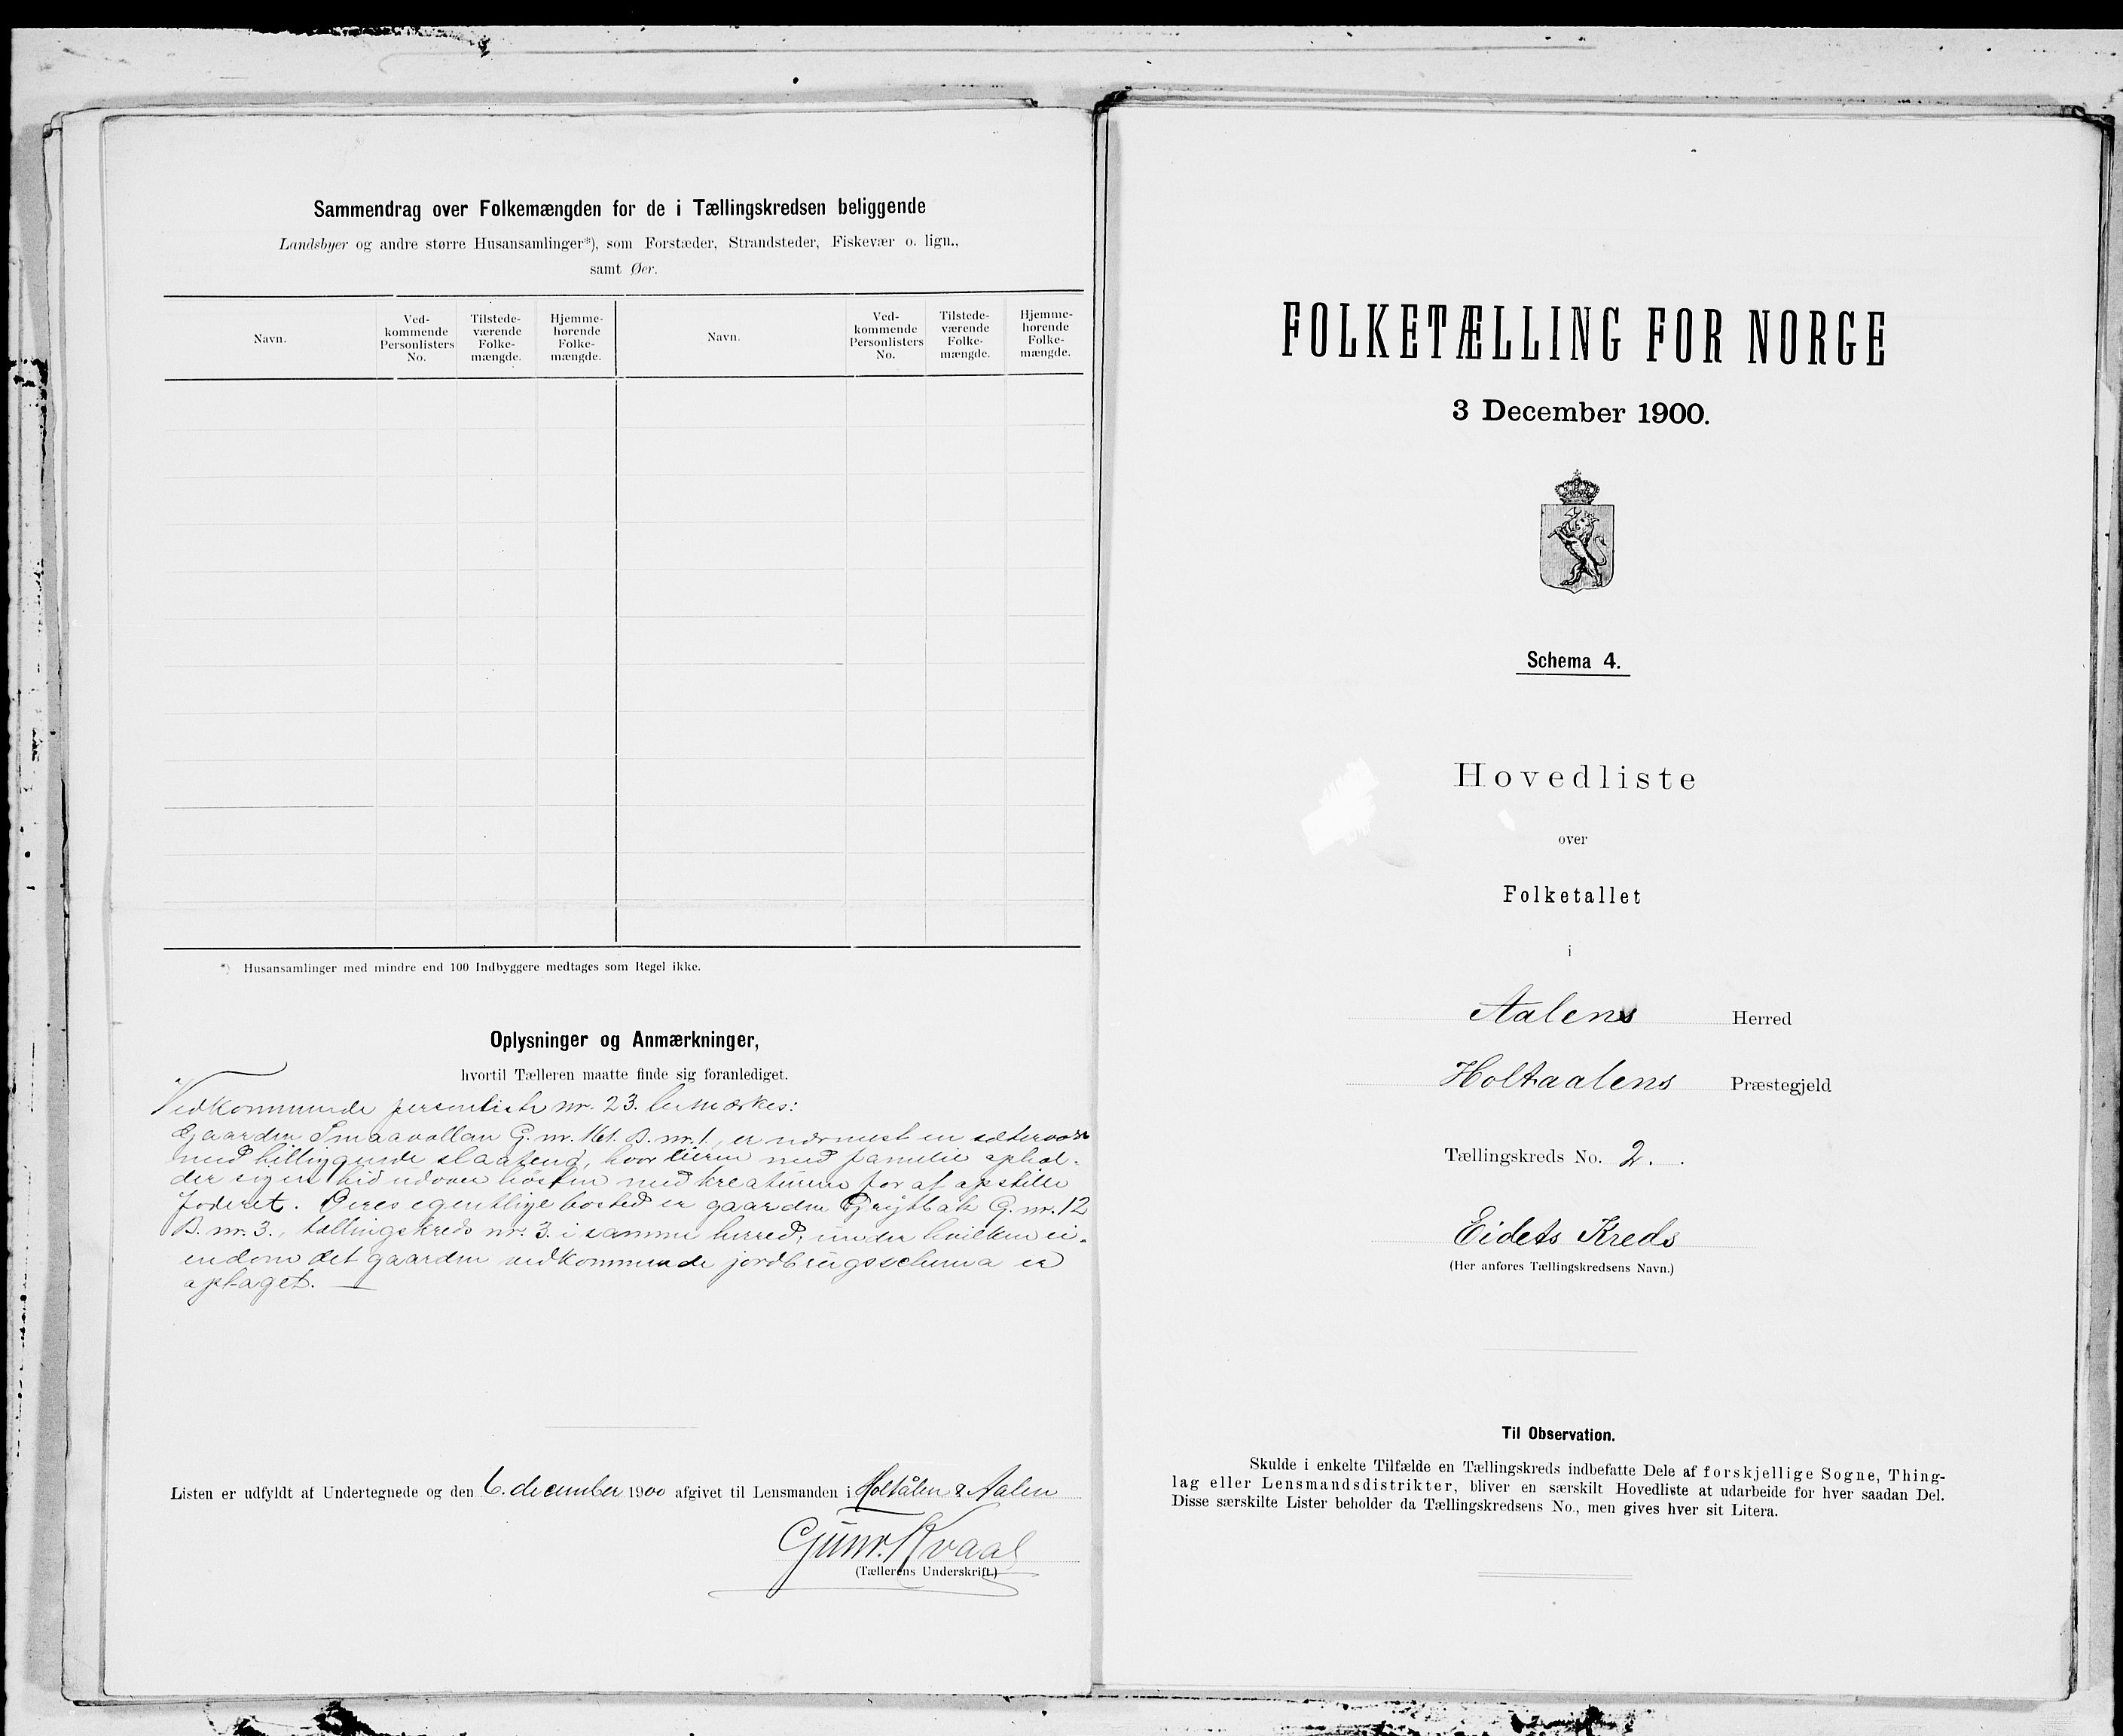 Sammendrag over Folkemængden for de i Tællingskredsen beliggende
Landsbyer og andre større Husansamlinger*), som Forstæder, Strandsteder, Fiskevær o. lign.,
samt Øer.
Navn.
Ved-
kommende
Personlisters
No.
Tilstede-
værende
Folke-
mængde.
Hjemme-
hørende
Folke-
mængde.
Navn.
Ved-
kommende
Personlisters
No.
Tilstede-
værende
Folke-
mængde.
Hjemme-
hørende
Folke-
mængde.
*) Husansamlinger med mindre end 100 Indbyggere medtages som Regel ikke.
Oplysninger og Anmærkninger,
hvortil Tælleren maatte finde sig foranlediget.
Vedkommende personliste nr. 23. bemærkes:
Gaarden Smaavollan G. nr. 161. B. nr. 1, er nærmest en
med hosliggende, hvor eieren med familie ophol-
der sig udover høsten med kreaturene for at opstille
foderet. Deres egentlige bosted er gaarden Grytbak G. nr. 12
B. nr. 3., tællingskreds nr. 3. i samme herred, under hvilken ei-
endom det gaarden vedkommende jordbrugsschema er
optaget.
Listen er udfyldt af Undertegnede og den 6. december 1900 afgivet til Lensmanden i Holtålen & Aalen
Gunr. Kvaal
(Tællerens Underskrift.)
FOLKETÆLLING FOR NORGE
3 December 1900.
Schema 4.
Hovedliste
over
Folketallet
i
Aalens Herred
Holtaalens Præstegjeld
Tællingskreds No. 2.
Eidets Kreds
(Her anføres Tællingskredsens Navn.)
Til Observation.
Skulde i enkelte Tilfælde en Tællingskreds indbefatte Dele af forskjellige Sogne, Thing-
lag eller Lensmandsdistrikter, bliver en særskilt Hovedliste at udarbeide for hver saadan Del.
Disse særskilte Lister beholder da Tællingskredsens No., men gives hver sit Litera.